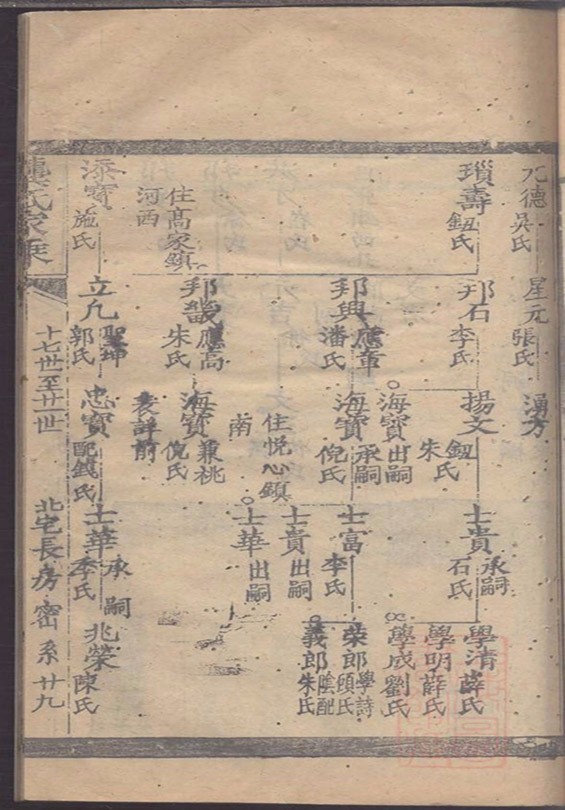 元德 吳氏
星元 張氏
湧方
瑣壽 鈕氏
邦石 李氏
揚文 鈕氏 朱氏
士貴 承嗣 石氏
學清 薛氏
學明 薛氏
學成 劉氏
邦興 應章 潘氏
海寶 出嗣
海寶 承嗣 倪氏
住悦心鎮南
士富 李氏
士貴 出嗣
士華 出嗣
榮郎 學詩 頊氏
義郎 陰配 朱氏
邦畿 應高 朱氏
海寶 兼祧 倪氏
表詳前
住髙家鎮河西
添寶 施氏
立凢 聖坤 郭氏
忠寶 配錢氏
士華 承嗣 李氏
兆榮 陳氏
氏家乘
十七世至廿一世
北宅長房密系 廿九